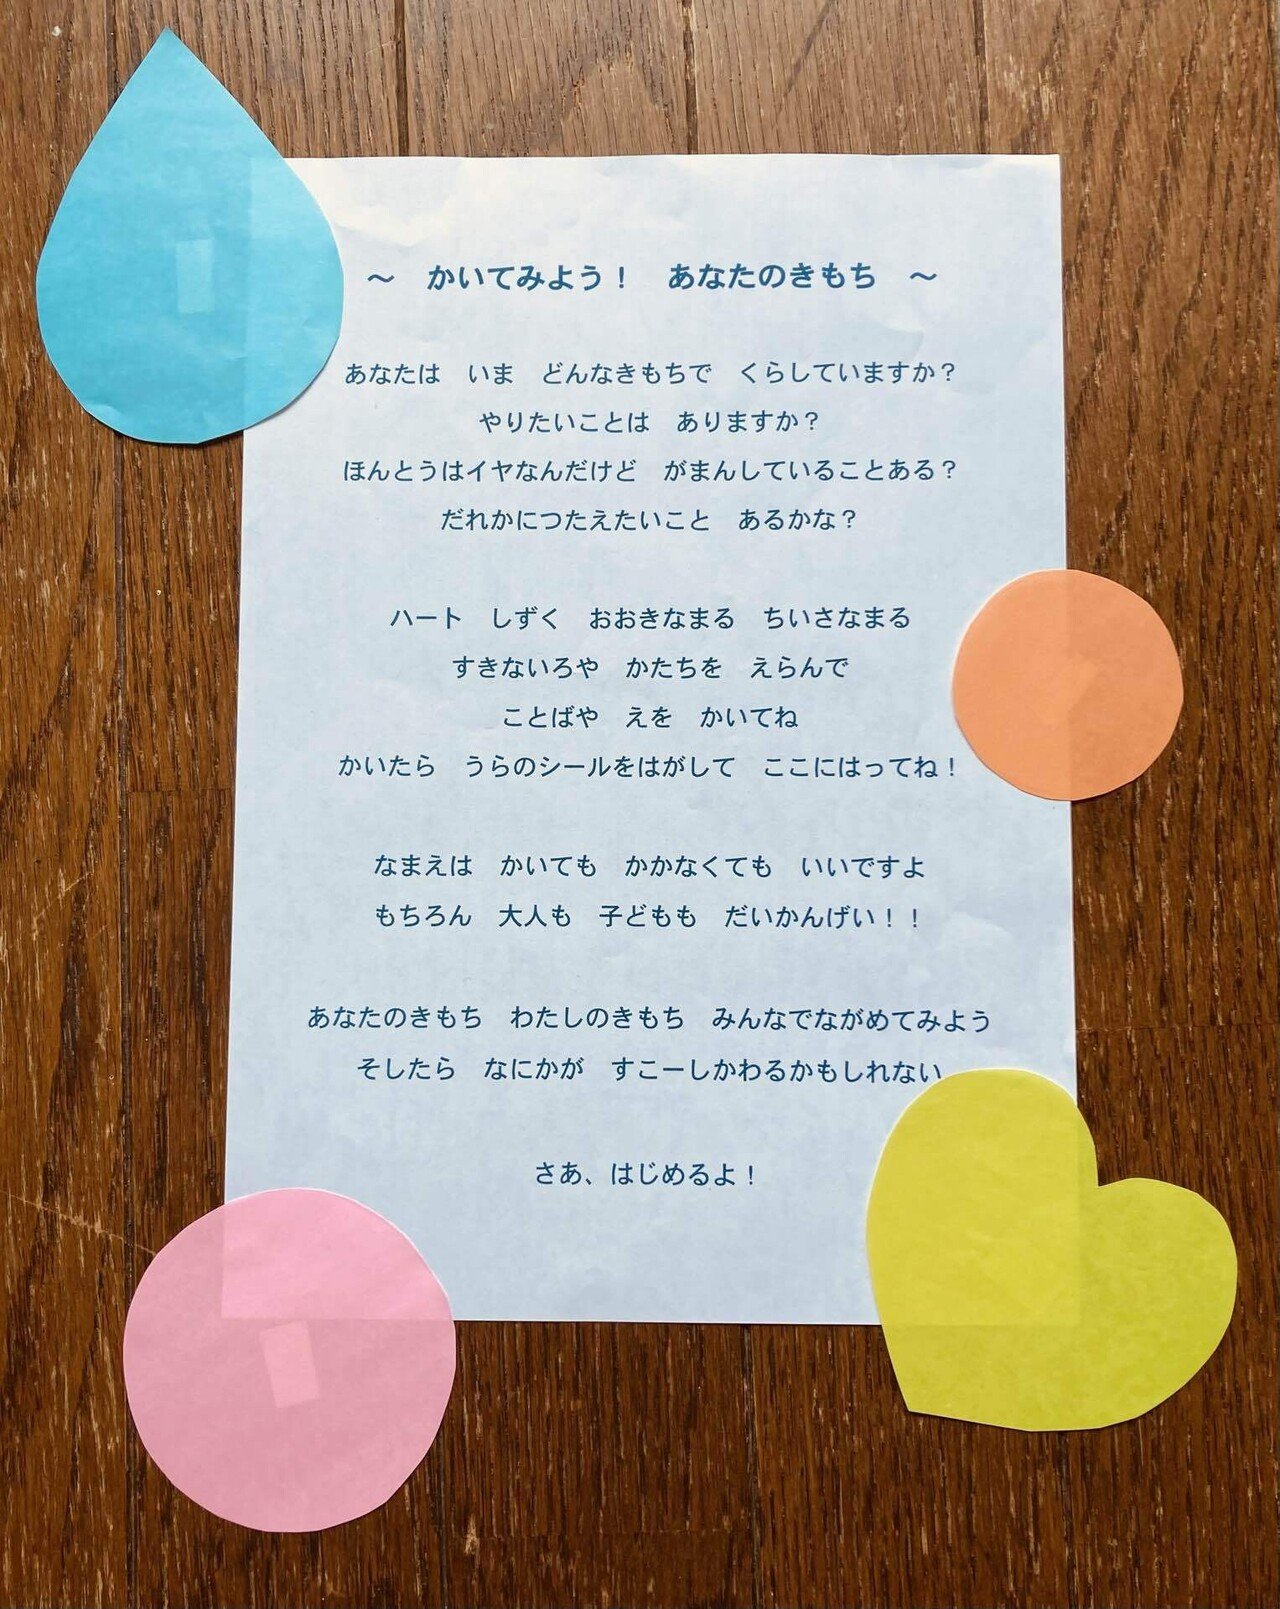 ～　かいてみよう！　あなたのきもち　～
あなたは　いま　どんなきもちで　くらしていますか？
やりたいことは　ありますか？
ほんとうはイヤなんだけど　がまんしていることある？
だれかにつたえたいこと　あるかな？
ハート　しずく　おおきなまる　ちいさなまる
すきないろや　かたちを　えらんで
ことばや　えを　かいてね
かいたら　うらのシールをはがして　ここにはってね！
なまえは　かいても　かかなくても　いいですよ
もちろん　大人も　子どもも　だいかんげい！！
あなたのきもち　わたしのきもち　みんなでながめてみよう
そしたら　なにかが　すこーしかわるかもしれない
さあ、はじめるよ！